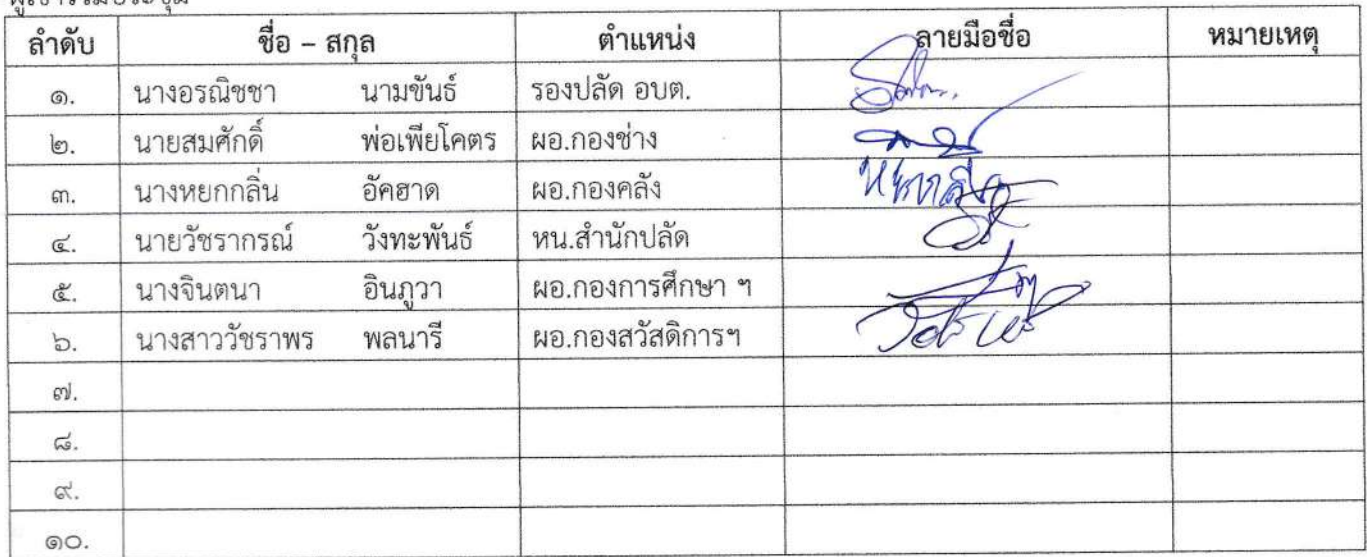 ผู้เข้าร่วมประชุม
ลำดับ ชื่อ – สกุล ตำแหน่ง ลายมือชื่อ หมายเหตุ
๑. นางอรณิชชา นามขันธ์ รองปลัด อบต.
๒. นายสมศักดิ์ พ่อเพียโคตร ผอ.กองช่าง
๓. นางหยกกลิ่น อัคฮาด ผอ.กองคลัง หยกกลิ่น
๔. นายวัชรากรณ์ วังทะพันธ์ หน.สำนักปลัด
๕. นางจินตนา อินภูวา ผอ.กองการศึกษา ฯ
๖. นางสาววัชราพร พลนารี ผอ.กองสวัสดิการฯ
๗.
๘.
๙.
๑๐.